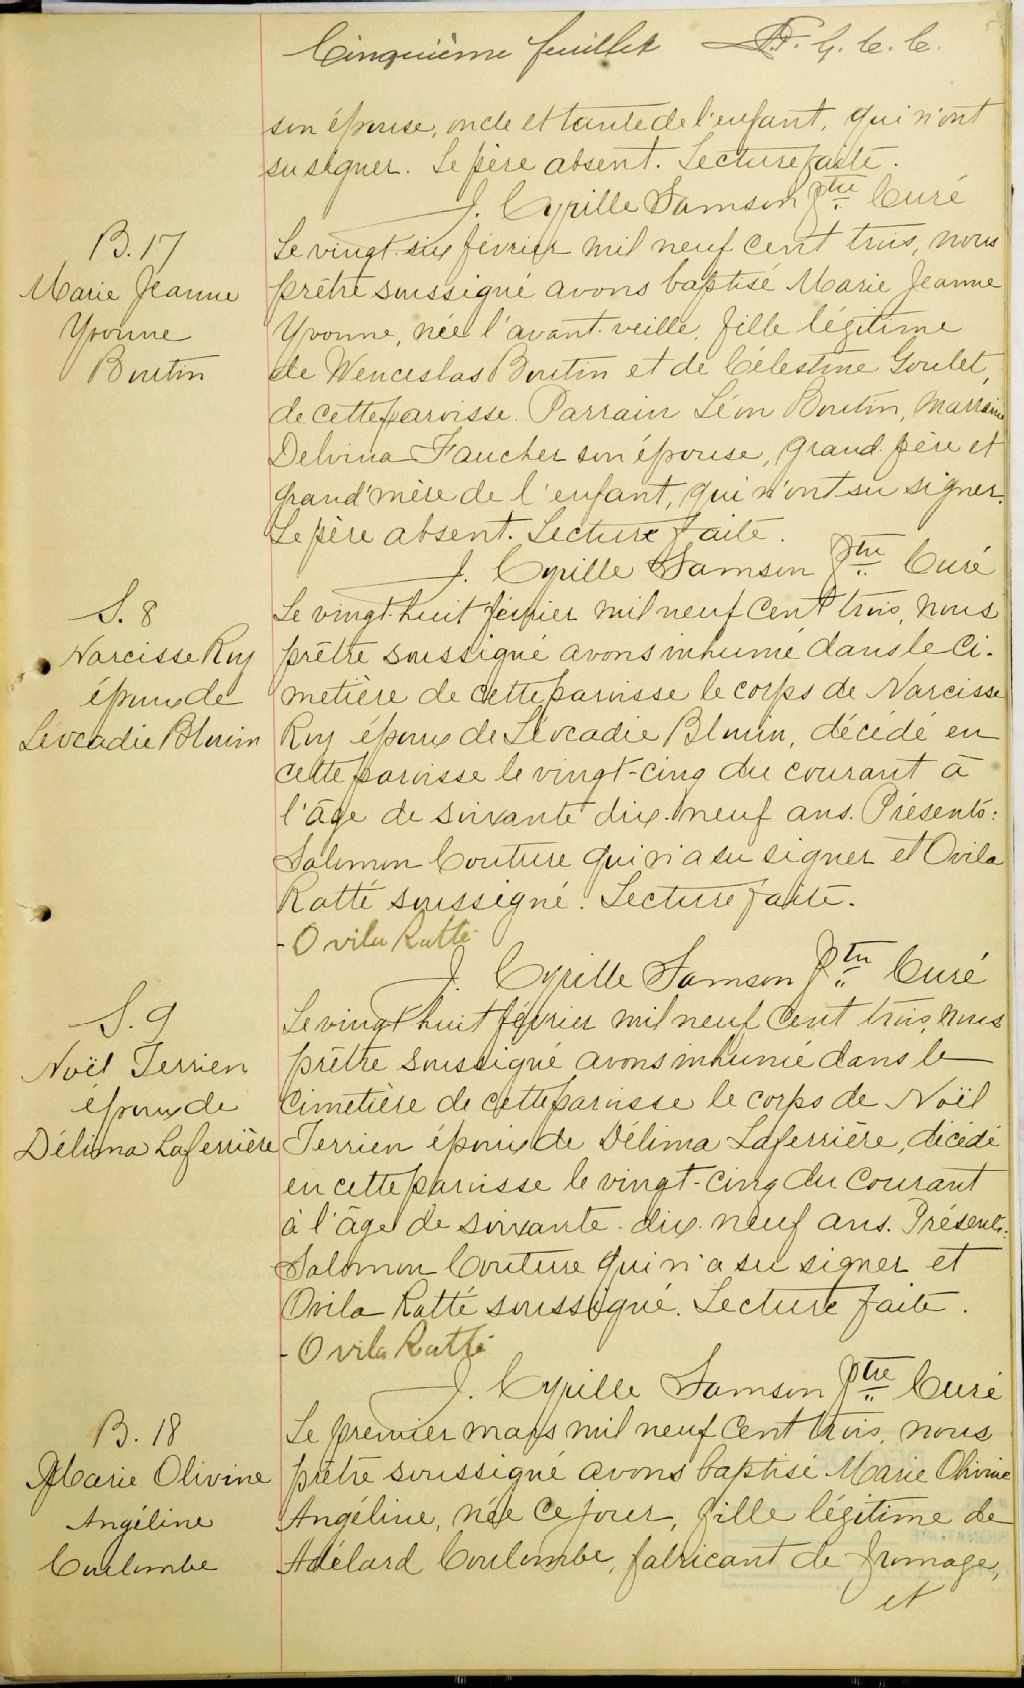 Cinquième feuillet G. C. C.
son épouse, oncle et tante de l'enfant, qui n'ont
su signer. Le père absent. Lecture faite.
J. Cyrille Samson Ptre Curé
B. 17
Marie Jeanne
Yvonne
Boutin
Le vingt-six février mil neuf cent trois, nous
prêtre soussigné avons baptisé Marie Jeanne
Yvonne, née l'avant-veille, fille légitime
de Wenceslas Boutin et de Célestine Goulet,
de cette paroisse. Parrain Léon Boutin, Marraine
Delvina Faucher son épouse, grand-père et
grand'mère de l'enfant, qui n'ont su signer.
Le père absent. Lecture faite.
J. Cyrille Samson Ptre Curé
S. 8
Narcisse Roy
époux de
Léocadie Blouin
Le vingt-huit février mil neuf cent trois, nous
prêtre soussigné avons inhumé dans le ci-
metière de cette paroisse le corps de Narcisse
Roy époux de Léocadie Blouin, décédé en
cette paroisse le vingt-cinq du courant à
l'âge de soixante dix-neuf ans. Présents:
Salomon Couture qui n'a su signer et Ovila
Ratté soussigné. Lecture faite.
- Ovila Ratté
J. Cyrille Samson Ptre Curé
S. 9
Noël Terrien
époux de
Délima Laferrière
Le vingt huit février mil neuf cent trois, nous
prêtre soussigné avons inhumé dans le
cimetière de cette paroisse le corps de Noël
Terrien époux de Délima Laferrière, décédé
en cette paroisse le vingt-cinq du courant
à l'âge de soixante-dix-neuf ans. Présents:
Salomon Couture qui n'a su signer et
Ovila Ratté soussigné. Lecture faite.
- Ovila Ratté
J. Cyrille Samson Ptre Curé
B. 18
Marie Olivine
Angéline
Coulombe
Le premier mars mil neuf cent trois, nous
prêtre soussigné avons baptisé Marie Olivine
Angéline, née ce jour, fille légitime de
Adélard Coulombe, fabricant de fromage,
et